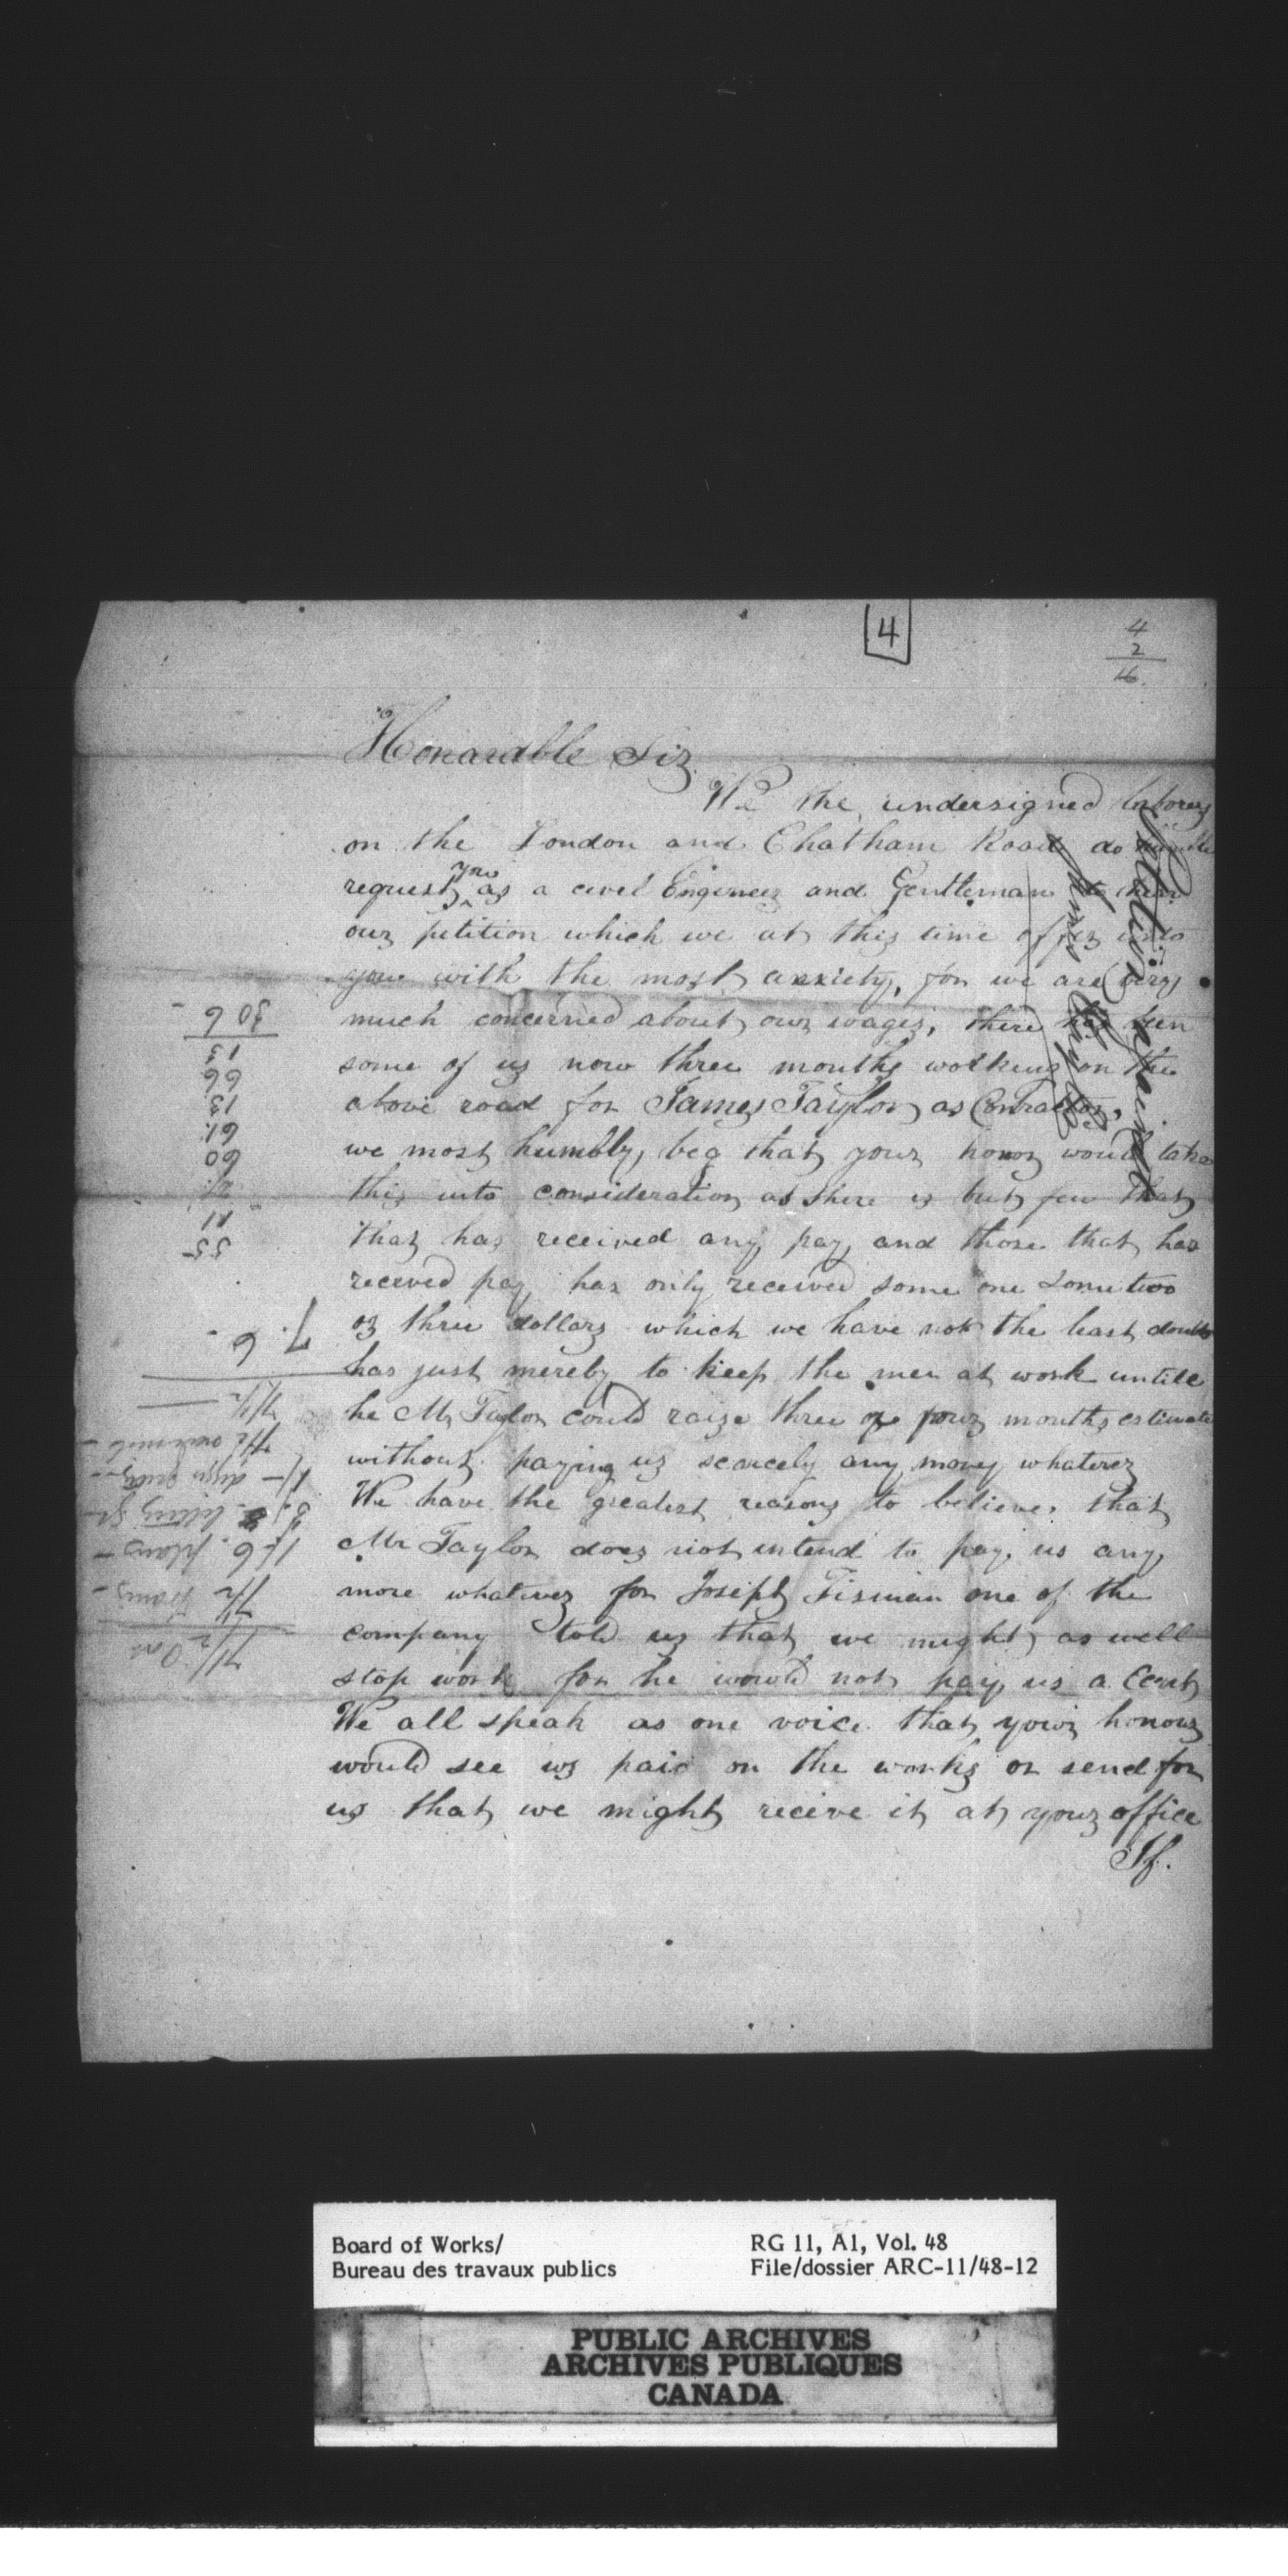 4
4
2
16.
Honarable Sir
We the undersigned laborers
on the London and Chatham Road do humble
request you as a civel Engineer and Gentleman to hear
our petition which we at this time offer unto
you with the most anxiety, for we are very
much concerned about our wages, there has been
some of us now three months working on the
above road for James Taylor as Contractor,
we most humbly beg that your honor would take
this into consideration as there is but few that
that has received any pay and those that has
receved pay has only received some one some two
or three dollars which we have not the least doubt
has just mereby to keep the men at work untill
he Mr Taylor could raize three or four months estimate
without paying us scarcely any money whatever
We have the greatest reasons to believe that
Mr Taylor does not intend to pay us any
more whatever for Joseph Tisman one of the
company told us that we might as well
stop work for he would not pay us a Cent
We all speak as one voice that your honour
would see us paid on the works or send for
us that we might recive it at your office
If.
James
55
11
60
61.
13
66
13
30 6
7. 6
7/2
1/6 plans
7/2
Board of Works/
Bureau des travaux publics
RG 11, A1, Vol. 48
File/dossier ARC-11/48-12
PUBLIC ARCHIVES
ARCHIVES PUBLIQUES
CANADA